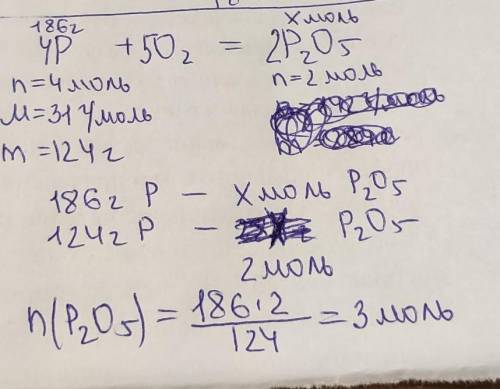 186г х моль
4P + 5O₂ = 2P₂O₅
n = 4 моль n = 2 моль
M = 31 г/моль
m = 124 г
186 г P – х моль P₂O₅
124 г P – P₂O₅
2 моль
n(P₂O₅) = 186·2 / 124 = 3 моль